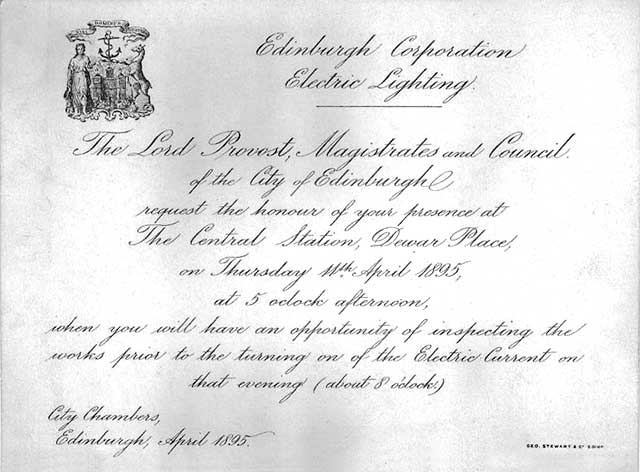 Edinburgh Corporation
Electric Lighting.
The Lord Provost, Magistrates and Council.
of the City of Edinburgh
request the honour of your presence at
The Central Station, Dewar Place,
on Thursday 11th April 1895,
at 5 oclock afternoon,
when you will have an opportunity of inspecting the
works prior to the turning on of the Electric Current on
that evening (about 8 o'clock.)
City Chambers,
Edinburgh, April 1895.
GEO. STEWART & Co EDINR